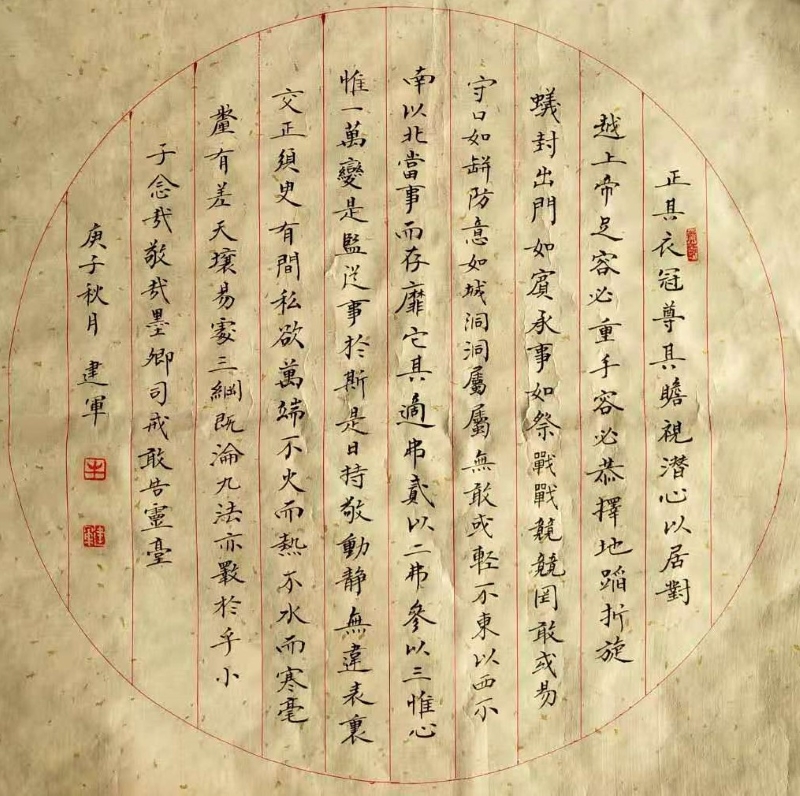 正其衣冠尊其瞻視潛心以居對
越上帝足容必重手容必恭擇地蹈折旋
蟻封出門如賓承事如祭戰戰兢兢罔敢或易
守口如缾防意如城洞洞屬屬無敢或輕不東以西不
南以北當事而存靡它其適弗貳以二弗參以三惟心
惟一萬變是監從事於斯是日持敬動靜無違表裏
交正須臾有間私欲萬端不火而熱不水而寒毫
釐有差天壤易處三綱既淪九法亦斁於乎小
子念哉敬哉墨卿司戒敢告靈臺
庚子秋月 建軍